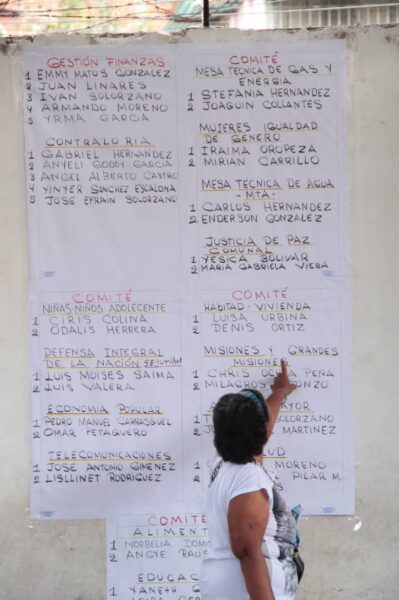 GESTIÓN FINANZAS
1 EMMY MATOS GONZALEZ
2 JUAN LINARES
3 IVAN SOLORZANO
4 ARMANDO MORENO
5 YRMA GARCIA
CONTRALORIA
1 GABRIEL HERNANDEZ
2 ANHELI GODOY GARCIA
3 ANGEL ALBERTO CASTRO
4 YINYER SANCHEZ ESCALONA
5 JOSE EFRAIN SOLORZANO
COMITÉ
MESA TECNICA DE GAS Y
ENERGIA
1 STEFANIA HERNANDEZ
2 JOAQUIN COLLANTES
MUJERES IGUALDAD
DE GENERO
1 IRAIMA OROPEZA
2 MIRIAN CARRILLO
MESA TECNICA DE AGUA
-MTA-
1 CARLOS HERNANDEZ
2 ENDERSON GONZALEZ
JUSTICIA DE PAZ
COMUNAL
1 YESICA BOLIVAR
2 MARIA GABRIELA VIERA
COMITÉ
NIÑAS-NIÑOS ADOLECENTE
1 CIRIS COLINA
2 ODALIS HERRERA
DEFENSA INTEGRAL
DE LA NACIÓN Seguridad
1 LUIS MOISES SAIMA
2 LUIS VALERA
ECONOMIA POPULAR
1 PEDRO MANUEL CARRASQUEL
2 OMAR PETAQUERO
TELECOMUNICACIONES
1 JOSE ANTONIO GIMENEZ
2 LISLLINET RODRIGUEZ
COMITÉ
HABITAD-VIVIENDA
1 LUISA URBINA
2 DENIS ORTIZ
MISIONES Y GRANDES
MISIONES
1 CHRIS PEÑA
2 MILAGROS
SOLORZANO
MARTINEZ
MORENO
PILAR M.
COMITÉ
1 NORBELIA
2 ANGYE
1 YANETH